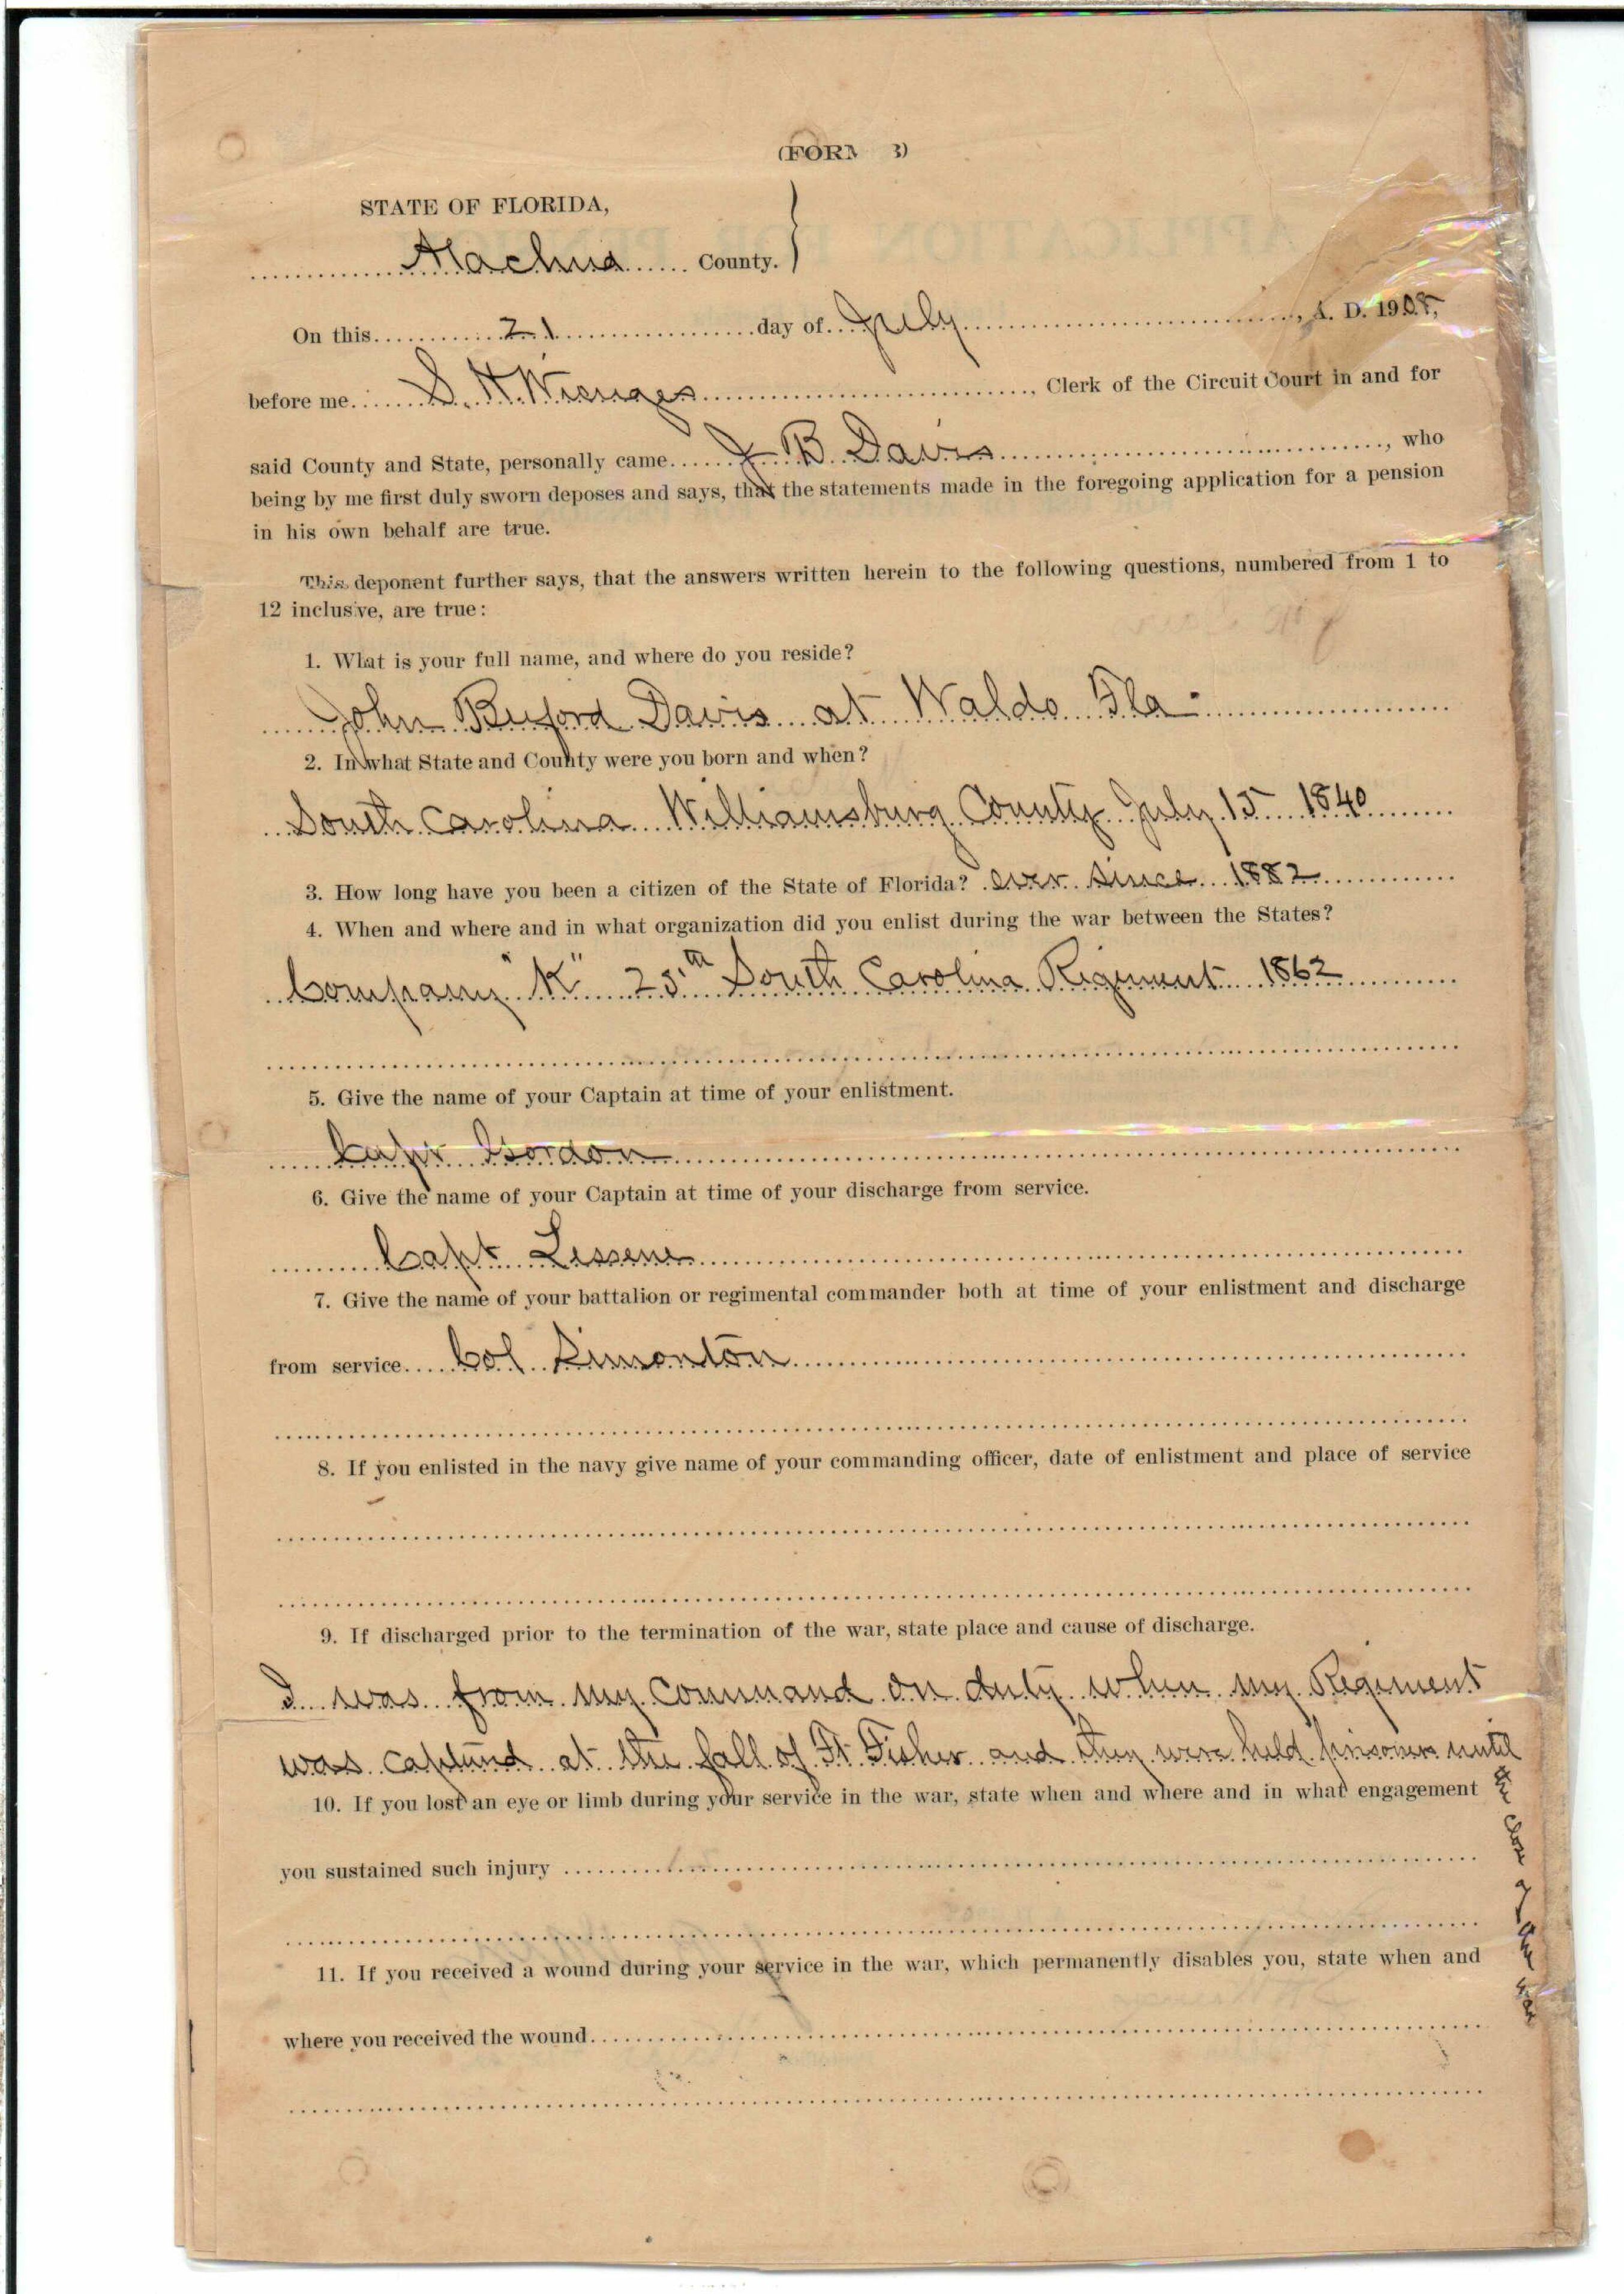 (FORM B)
STATE OF FLORIDA,
Alachua County.
On this 21 day of July, A. D. 190
before me S. H. Wienges, Clerk of the Circuit Court in and for
said County and State, personally came J. B. Davis, who
being by me first duly sworn deposes and says, that the statements made in the foregoing application for a pension
in his own behalf are true.
This deponent further says, that the answers written herein to the following questions, numbered from 1 to
12 inclusive, are true:
1. What is your full name, and where do you reside?
John Buford Davis at Waldo Fla
2. In what State and County were you born and when?
South Carolina Williamsburg County July 15 1840
3. How long have you been a citizen of the State of Florida? ever since 1882
4. When and where and in what organization did you enlist during the war between the States?
Company "K" 25th South Carolina Regiment 1862
5. Give the name of your Captain at time of your enlistment.
Capt Gordon
6. Give the name of your Captain at time of your discharge from service.
Capt. Lessene
7. Give the name of your battalion or regimental commander both at time of your enlistment and discharge
from service Col Simonton
8. If you enlisted in the navy give name of your commanding officer, date of enlistment and place of service
9. If discharged prior to the termination of the war, state place and cause of discharge.
I was from my command on duty when my Regiment
was captured at the fall of Ft. Fisher and they were held prisoners until
the close of the war
10. If you lost an eye or limb during your service in the war, state when and where and in what engagement
you sustained such injury
11. If you received a wound during your service in the war, which permanently disables you, state when and
where you received the wound